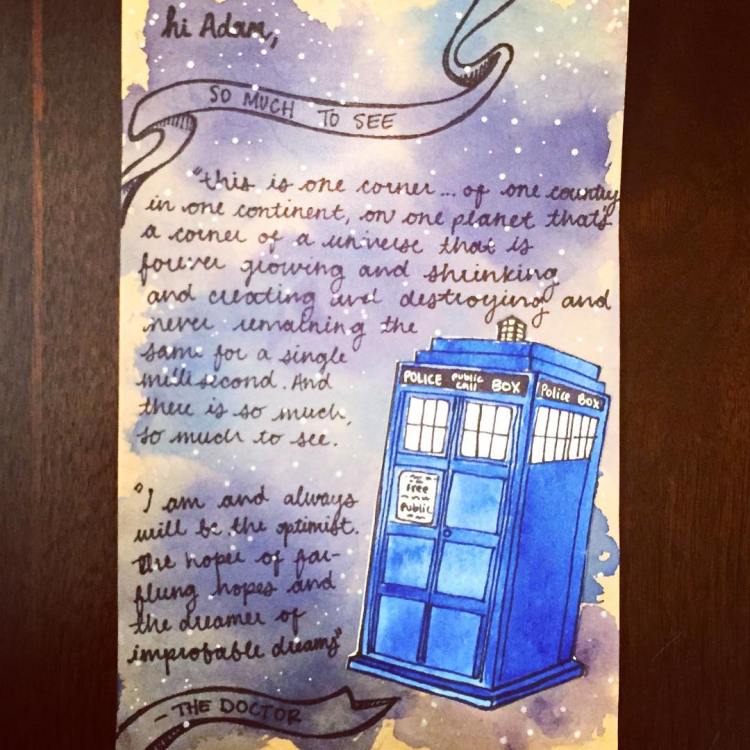 hi Adam,
SO MUCH TO SEE
"this is one corner... of one country
in one continent, on one planet that's
a corner of a universe that is
forever growing and shrinking
and creating and destroying and
never remaining the
same for a single
millisecond. And
there is so much,
so much to see.
POLICE public call BOX
Police Box
Free
Public
"I am and always
will be the optimist.
the hoper of far-
flung hopes and
the dreamer of
improbable dreams"
- THE DOCTOR